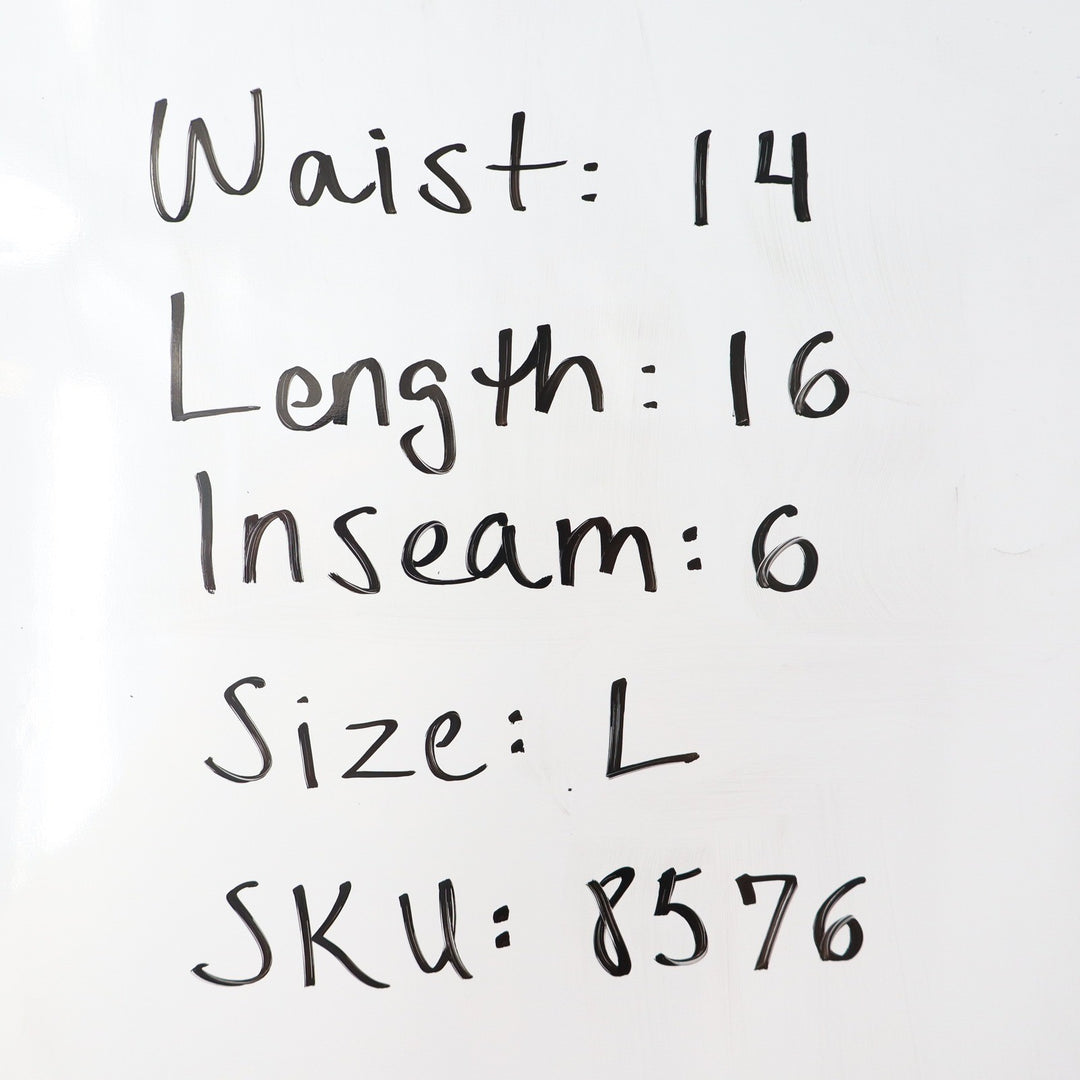 Waist: 14
Length: 16
Inseam: 6
Size: L
SKU: 8576